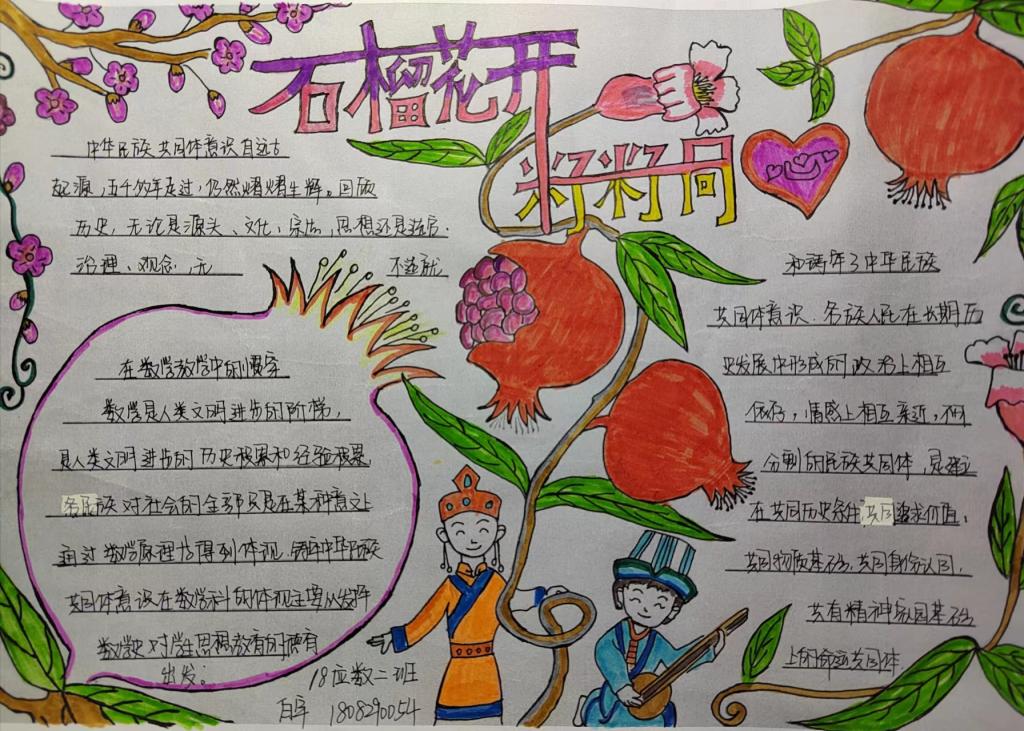 石榴花开
籽籽同
中华民族共同体意识自远古
起源，五千多年走过，仍然熠熠生辉。回顾
历史，无论是源头、文化、宗法，思想还是
治理、观念，无 不造就
在数学教学中的
数学是人类文明进步的阶梯，
是人类文明进步的历史极果和经验极果
各民族对社会的全部只是在某种意义上
通过数学原理才得到体现，中华民族
共同体意识在数学科的体现主要从发挥
数学史对学生思想教育的
出发；
18应数二班
1808290054
和 了中华民族
共同体意识.各族人民在长期历
史发展中形成的政治上相互
依存，情感上相互亲近，不可
分割的民族共同体，是建立
在共同历史条件共同追求价值，
共同物质基础，共同身份认同，
共有精神家园基础
上的命运共同体